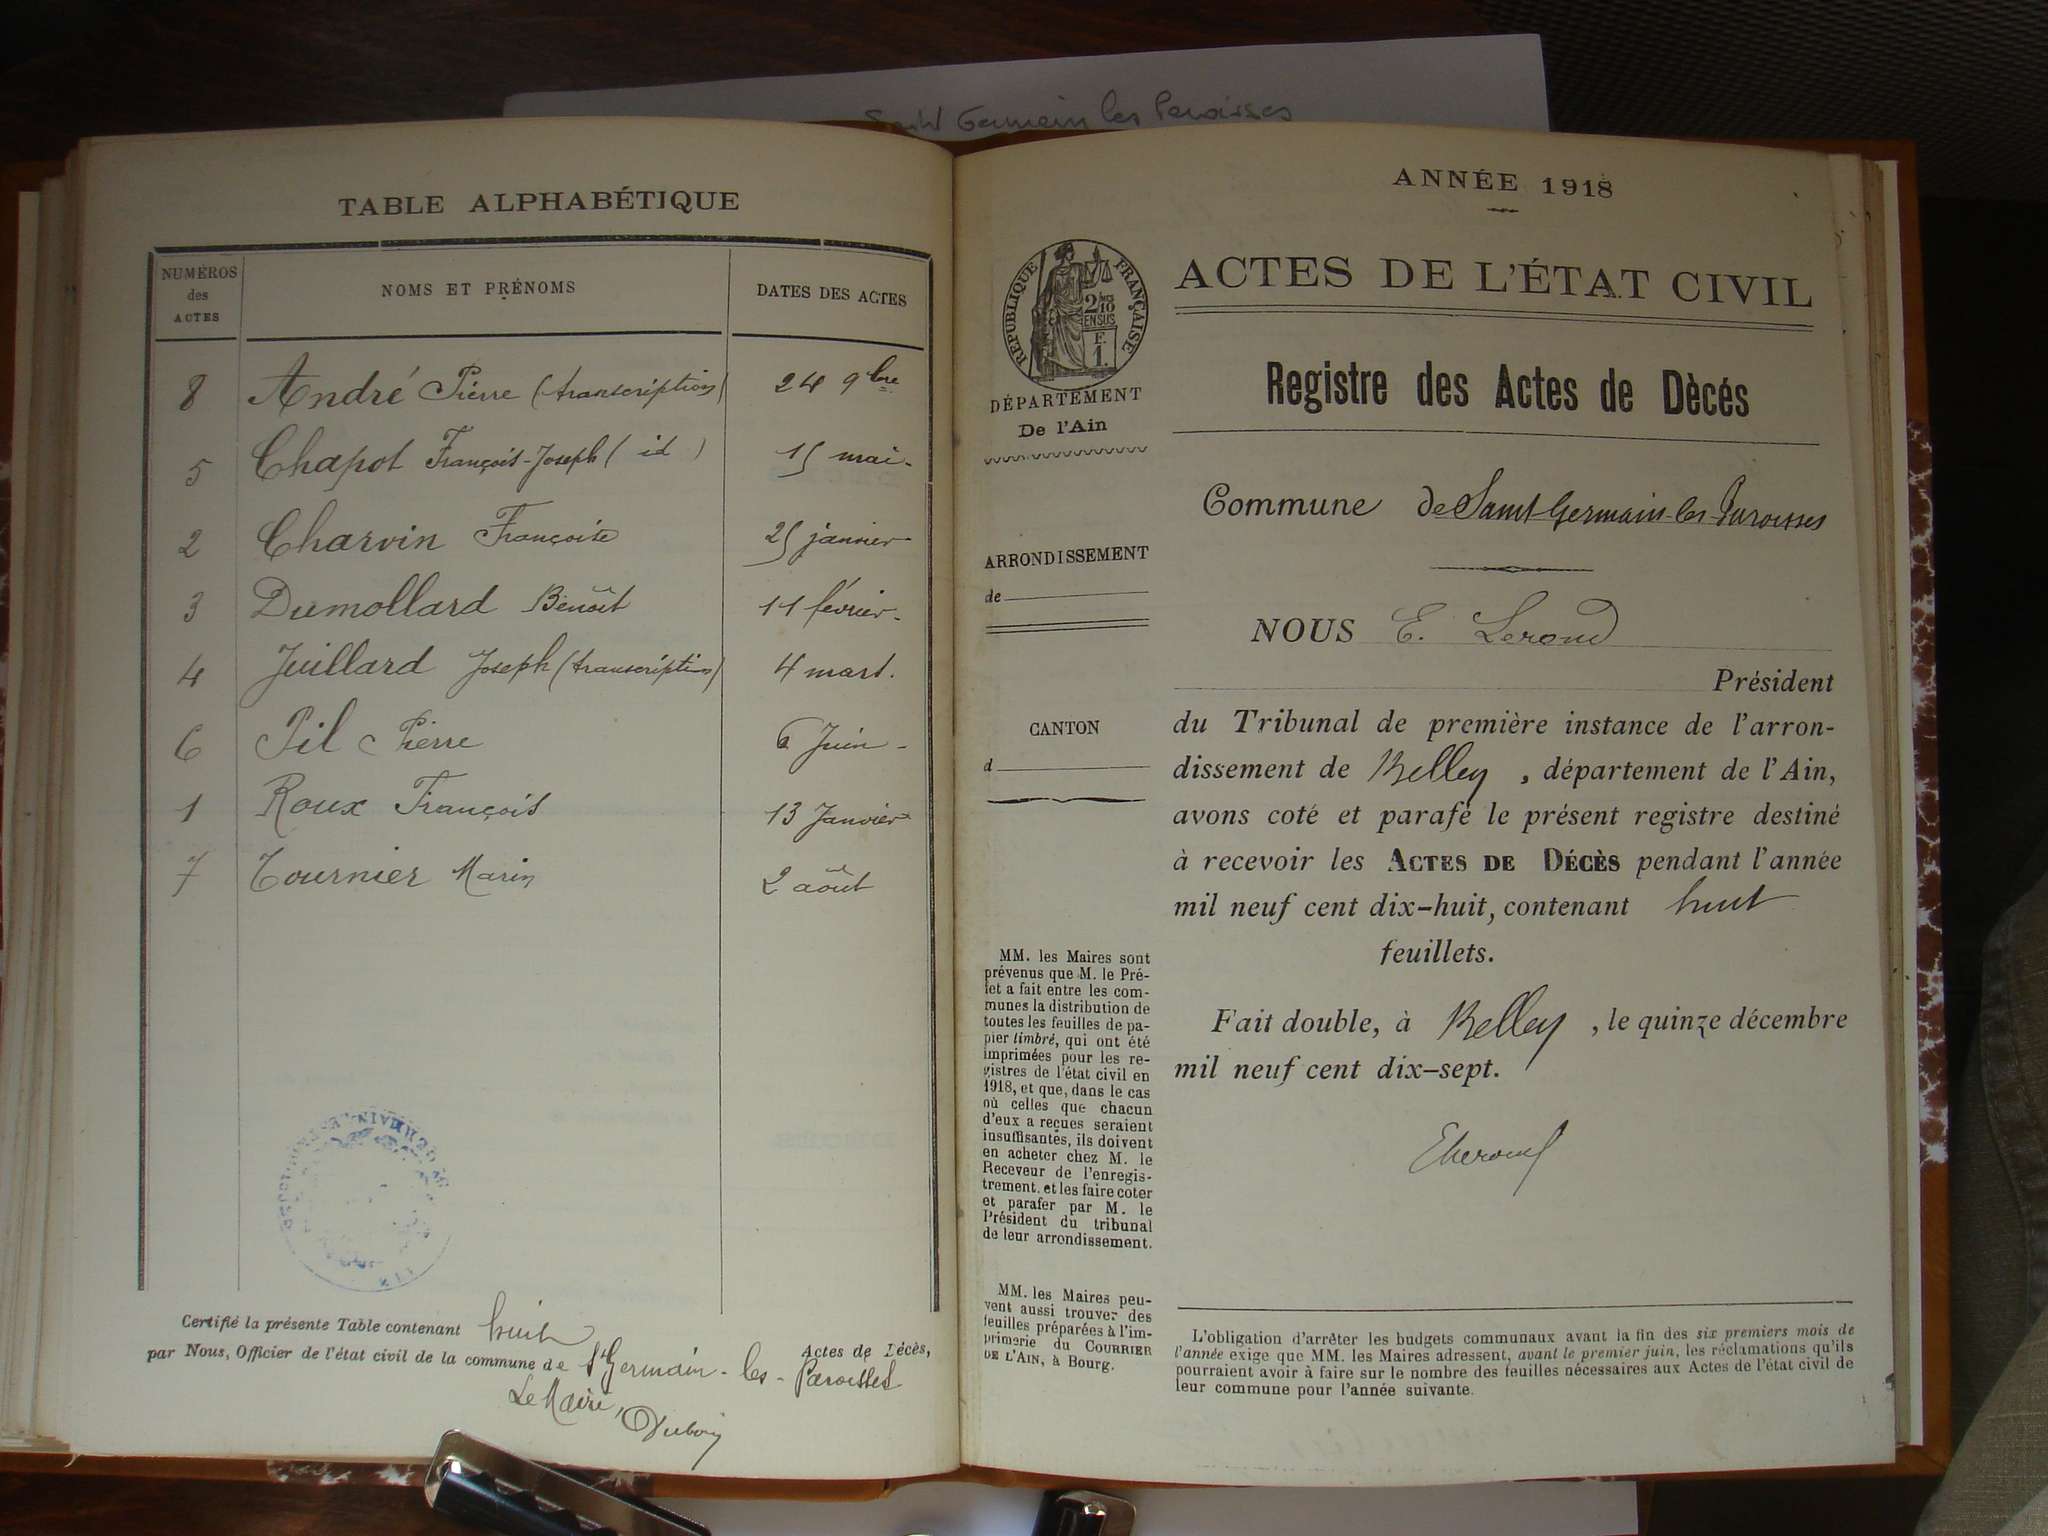 Saint Germain les Paroisses
TABLE ALPHABÉTIQUE
NUMÉROS des ACTES
NOMS ET PRÉNOMS
DATES DES ACTES
8 André Pierre (transcription) 24 9bre
5 Chapot François-Joseph ( id ) 15 mai
2 Charvin Françoise 25 janvier
3 Dumollard Benoît 11 février
4 Juillard Joseph (transcription) 4 mars.
6 Pil Pierre 6 Juin
1 Roux François 13 Janvier
7 Tournier Marin 2 août
Certifié la présente Table contenant huit
Actes de Décès,
par Nous, Officier de l'état civil de la commune de St Germain-les-Paroisses
Le Maire,
Dubois
ANNÉE 1918
RÉPUBLIQUE FRANÇAISE
DÉPARTEMENT
De l'Ain
ARRONDISSEMENT
de
CANTON
d
MM. les Maires sont
prévenus que M. le Pré-
fet a fait entre les com-
munes la distribution de
toutes les feuilles de pa-
pier timbré, qui ont été
imprimées pour les re-
gistres de l'état civil en
1918, et que, dans le cas
où celles que chacun
d'eux a reçues seraient
insuffisantes, ils doivent
en acheter chez M. le
Receveur de l'enregis-
trement. et les faire coter
et parafer par M. le
Président du tribunal
de leur arrondissement.
MM. les Maires peu-
vent aussi trouver des
feuilles préparées à l'im-
primerie du COURRIER
DE L'AIN, à Bourg.
ACTES DE L'ÉTAT CIVIL
Registre des Actes de Dècés
Commune de Saint-Germain-les-Paroisses
NOUS E. Lerond
Président
du Tribunal de première instance de l'arron-
dissement de Belley , département de l'Ain,
avons coté et parafé le présent registre destiné
à recevoir les ACTES DE DÉCÈS pendant l'année
mil neuf cent dix-huit, contenant huit
feuillets.
Fait double, à Belley , le quinze décembre
mil neuf cent dix-sept.
L'obligation d'arrêter les budgets communaux avant la fin des six premiers mois de
l'année exige que MM. les Maires adressent, avant le premier juin, les réclamations qu'ils
pourraient avoir à faire sur le nombre des feuilles nécessaires aux Actes de l'état civil de
leur commune pour l'année suivante.